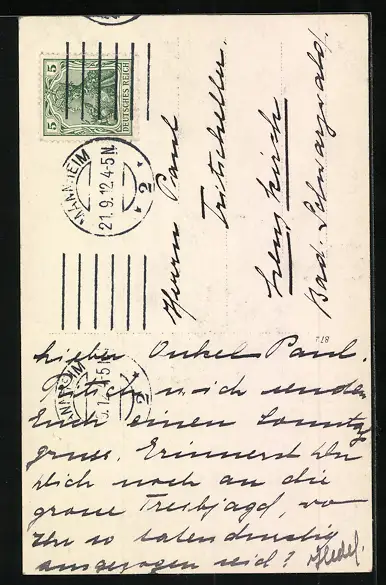 5 5
DEUTSCHES REICH
MANNHEIM
21.9.12.4-5N.
2
Herrn Paul
Tritscheller.
Lenzkirch
Bad. Schwarzwald.
Lieber Onkel Paul.
Fritz u. ich senden
Euch einen Sonntags
gruss. Erinnerst Du
Dich noch an die
grosse Treibjagd, wo
Ihr so
ausgezogen seid? Hedel.